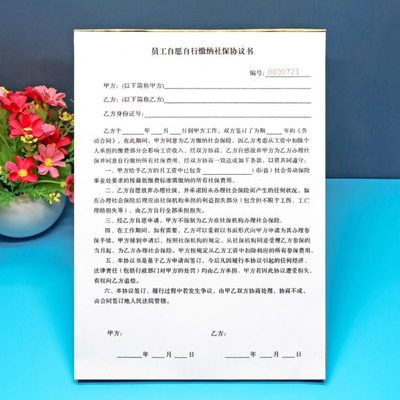 员工自愿自行缴纳社保协议书
编号:0000721
甲方:(以下简称甲方)
乙方:(以下简称乙方)
乙方身份证号:
乙方于____年____月____日到甲方工作,双方签订了为期____年的《劳
动合同》。在此期间,甲方同意为乙方缴纳社会保险。因乙方考虑从工资中扣除个
人承担的缴费部分会影响工资收入,经双方协商,乙方自感放弃甲方为乙方办理社
保并同意自行缴纳所有社保费用。经双方协商一致达成如下条款,以资共同遵守:
一、甲方给予乙方的月工资中已包含____(市/县)社会劳动保险
事业处要求的按最低缴费标准需缴纳的所有社保费用。
二、乙方自愿放弃办理社保,并承诺因未办理社会保险而产生的任何状况,如
在办理社会保险后理应由社保机构承担的利益损失部分(包含但不限于工伤、工亡
理赔损失等),由乙方自行全部承担损失。
三、经乙方自愿申请,甲方不强制为乙方在社保机构办理社会保险。
四、在工作期间,如有需要,乙方可以重新以书面形式向甲方申请为其办理参
保手续。甲方接到申请后,按照社保机构的规定,从社保机构同意受理乙方参保的
当月起,为乙方办理社会保险。甲方按规定从乙方工资中扣除相应的所有参保费用。
五、本协议书是基于乙方申请而签订,今后凡因履行本协议引起的任何经济、
法律责任(包括行政部门对甲方的处罚)均由乙方承担。甲方若因此协议遭受损失,
有权向乙方追偿。
六、本协议签订、履行过程中若发生争议,由甲乙双方协商处理,协商不成,
由合同签订地人民法院管辖。
甲方: 乙方:
____年____月____日 ____年____月____日